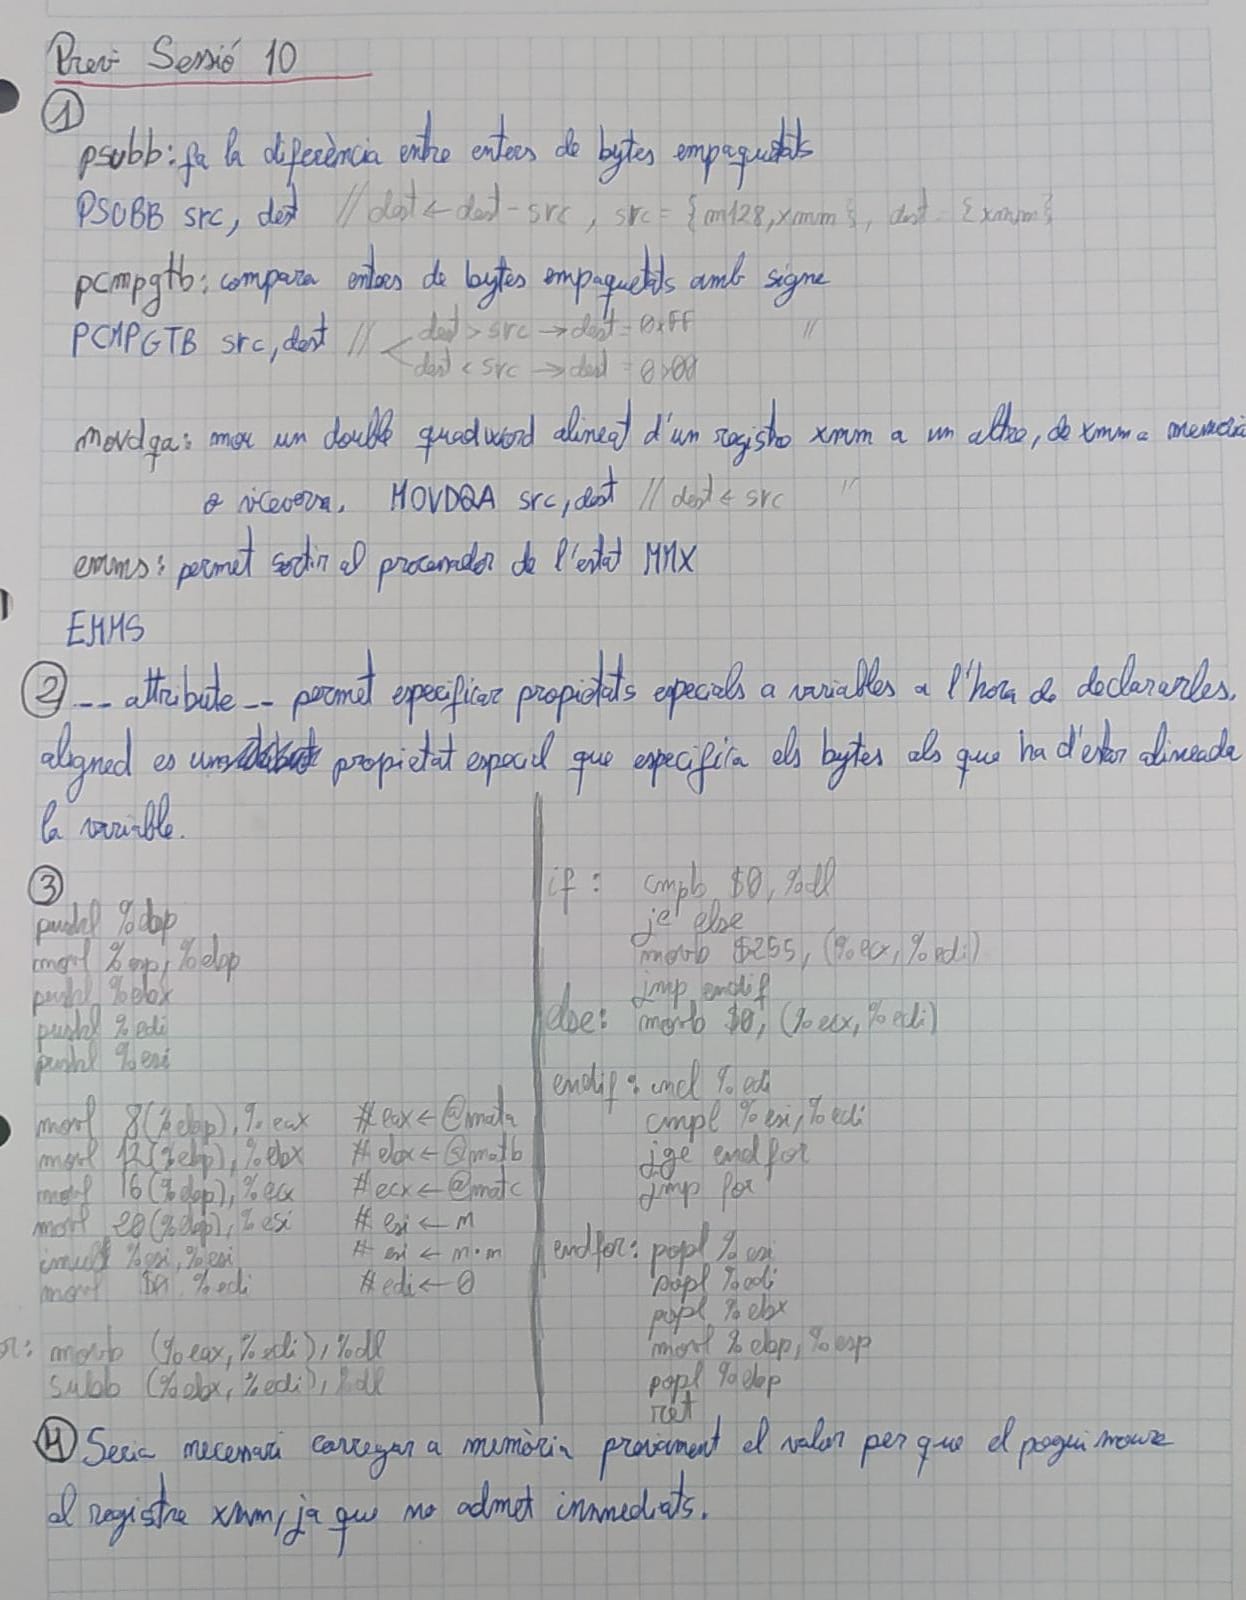 Previ Sessió 10
①
psubb: fa la diferència entre enters de bytes empaquetats
PSUBB src, dest // dest ← dest - src, src = {m128, xmm}, dest = {xmm}
pcmpgtb: compara enters de bytes empaquetats amb signe
PCMPGTB src, dest // dest > src → dest = 0xFF "
dest < src → dest = 0x00
movdqa: mou un double quadword alineat d'un registre xmm a un altre, de xmm a memòria
o viceversa. MOVDQA src, dest // dest ← src "
emms: permet sortir al processador de l'estat MMX
EMMS
② __attribute__ permet especificar propietats especials a variables a l'hora de declararles.
aligned es una propietat especial que especifica els bytes als que ha d'estar alineada
la variable.
③
pushl %ebp
movl %esp, %ebp
pushl %ebx
pushl %edi
pushl %esi
movl 8(%ebp), %eax #eax ← @mata
movl 12(%ebp), %ebx #ebx ← @matb
movl 16(%ebp), %ecx #ecx ← @matc
movl 20(%ebp), %esi # esi ← m
imull %esi, %esi # esi ← m·m
movl $0, %edi #edi ← 0
or: movb (%eax, %edi), %dl
subb (%ebx, %edi), %dl
if: cmpb $0, %dl
je else
movb $255, (%ecx, %edi)
jmp endif
else: movb $0, (%ecx, %edi)
endif: incl %edi
cmpl %esi, %edi
jge endfor
jmp for
endfor: popl %esi
popl %edi
popl %ebx
movl %ebp, %esp
popl %ebp
ret
④ Seria necessari carregar a memòria previament el valor per que el pogui moure
al registre xmm, ja que no admet inmediats.